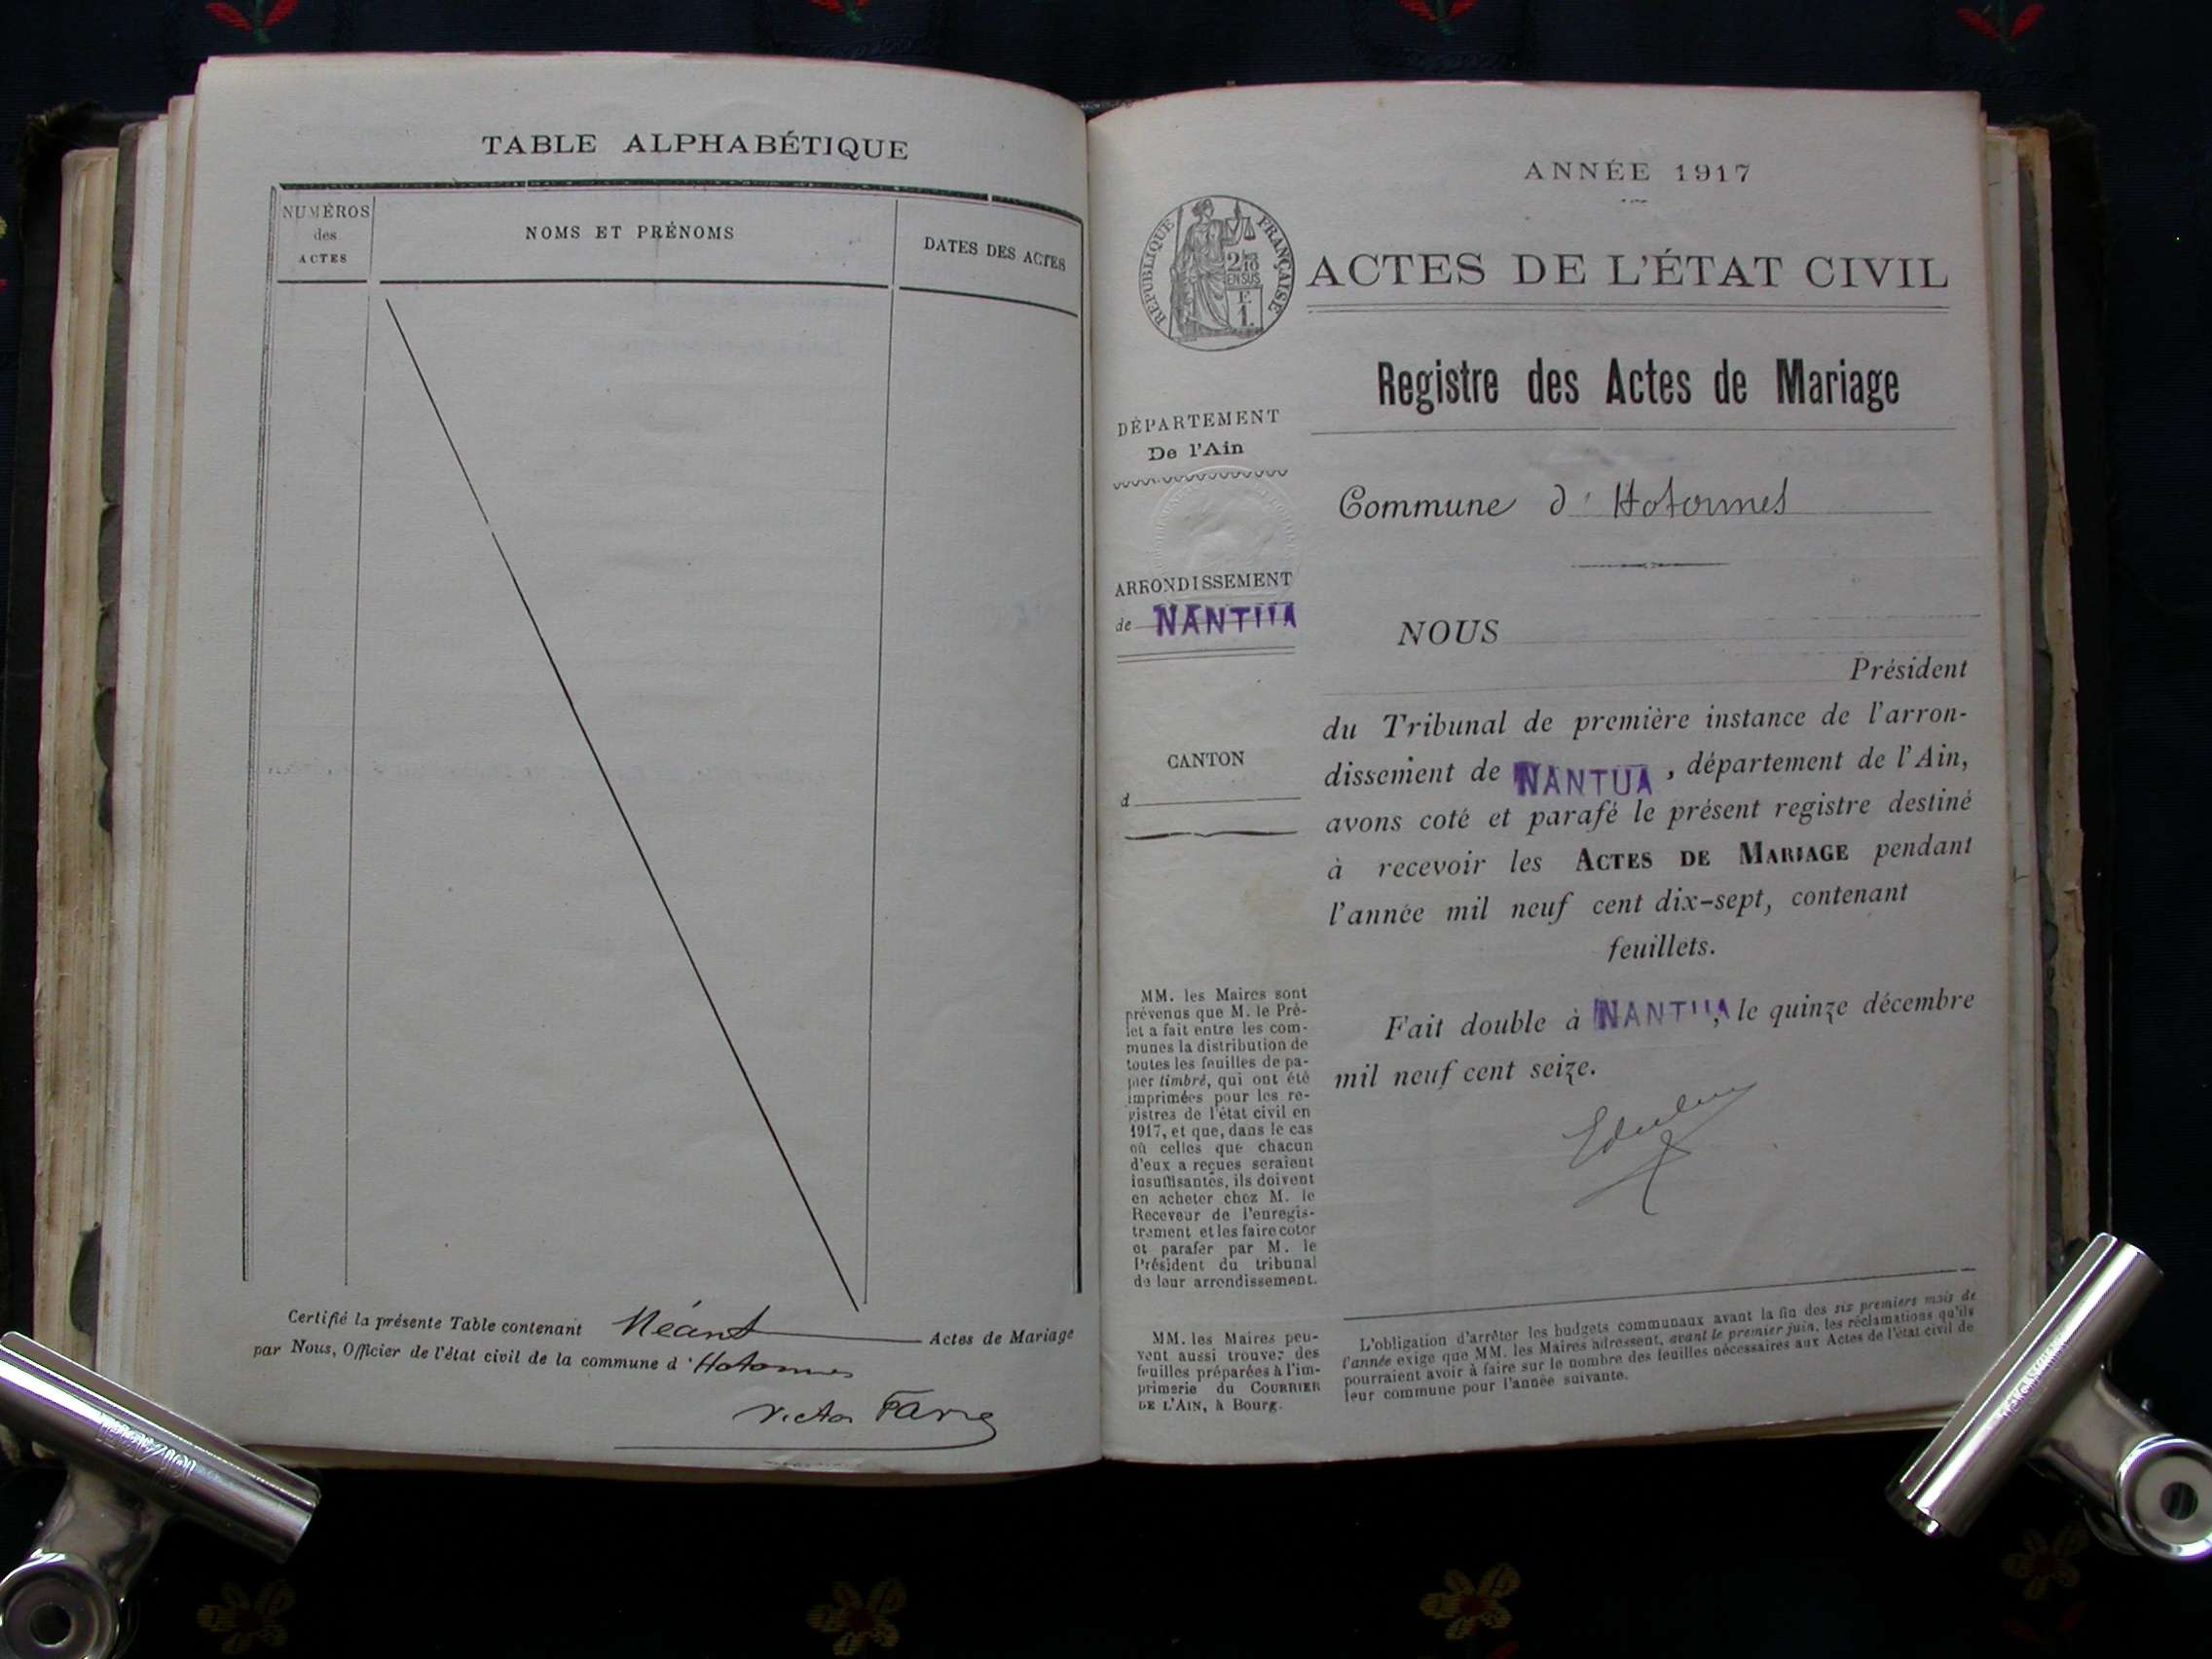 TABLE ALPHABÉTIQUE
NUMÉROS
des
ACTES
NOMS ET PRÉNOMS
DATES DES ACTES
Certifié la présente Table contenant Néant Actes de Mariage
par Nous, Officier de l'état civil de la commune d'Hotonnes
Victor Favre
ANNÉE 1917
RÉPUBLIQUE FRANÇAISE
2/10
EN SUS
F.
1.
ACTES DE L'ÉTAT CIVIL
Registre des Actes de Mariage
DÉPARTEMENT
De l'Ain
Commune d'Hotonnes
ARRONDISSEMENT
de NANTUA
CANTON
d
NOUS
Président
du Tribunal de première instance de l'arron-
dissement de NANTUA, département de l'Ain,
avons coté et parafé le présent registre destiné
à recevoir les ACTES DE MARIAGE pendant
l'année mil neuf cent dix-sept, contenant
feuillets.
Fait double à NANTUA, le quinze décembre
mil neuf cent seize.
MM. les Maires sont
prévenus que M. le Pré-
fet a fait entre les com-
munes la distribution de
toutes les feuilles de pa-
pier timbré, qui ont été
imprimées pour les re-
gistres de l'état civil en
1917, et que, dans le cas
où celles que chacun
d'eux a reçues seraient
insuffisantes, ils doivent
en acheter chez M. le
Receveur de l'enregis-
trement et les faire coter
et parafer par M. le
Président du tribunal
de leur arrondissement.
MM. les Maires peu-
vent aussi trouver des
feuilles préparées à l'im-
primerie du COURRIER
DE L'AIN, à Bourg.
L'obligation d'arrêter les budgets communaux avant la fin des six premiers mois de
l'année exige que MM. les Maires adressent, avant le premier juin, les réclamations qu'ils
pourraient avoir à faire sur le nombre des feuilles nécessaires aux Actes de l'état civil de
leur commune pour l'année suivante.